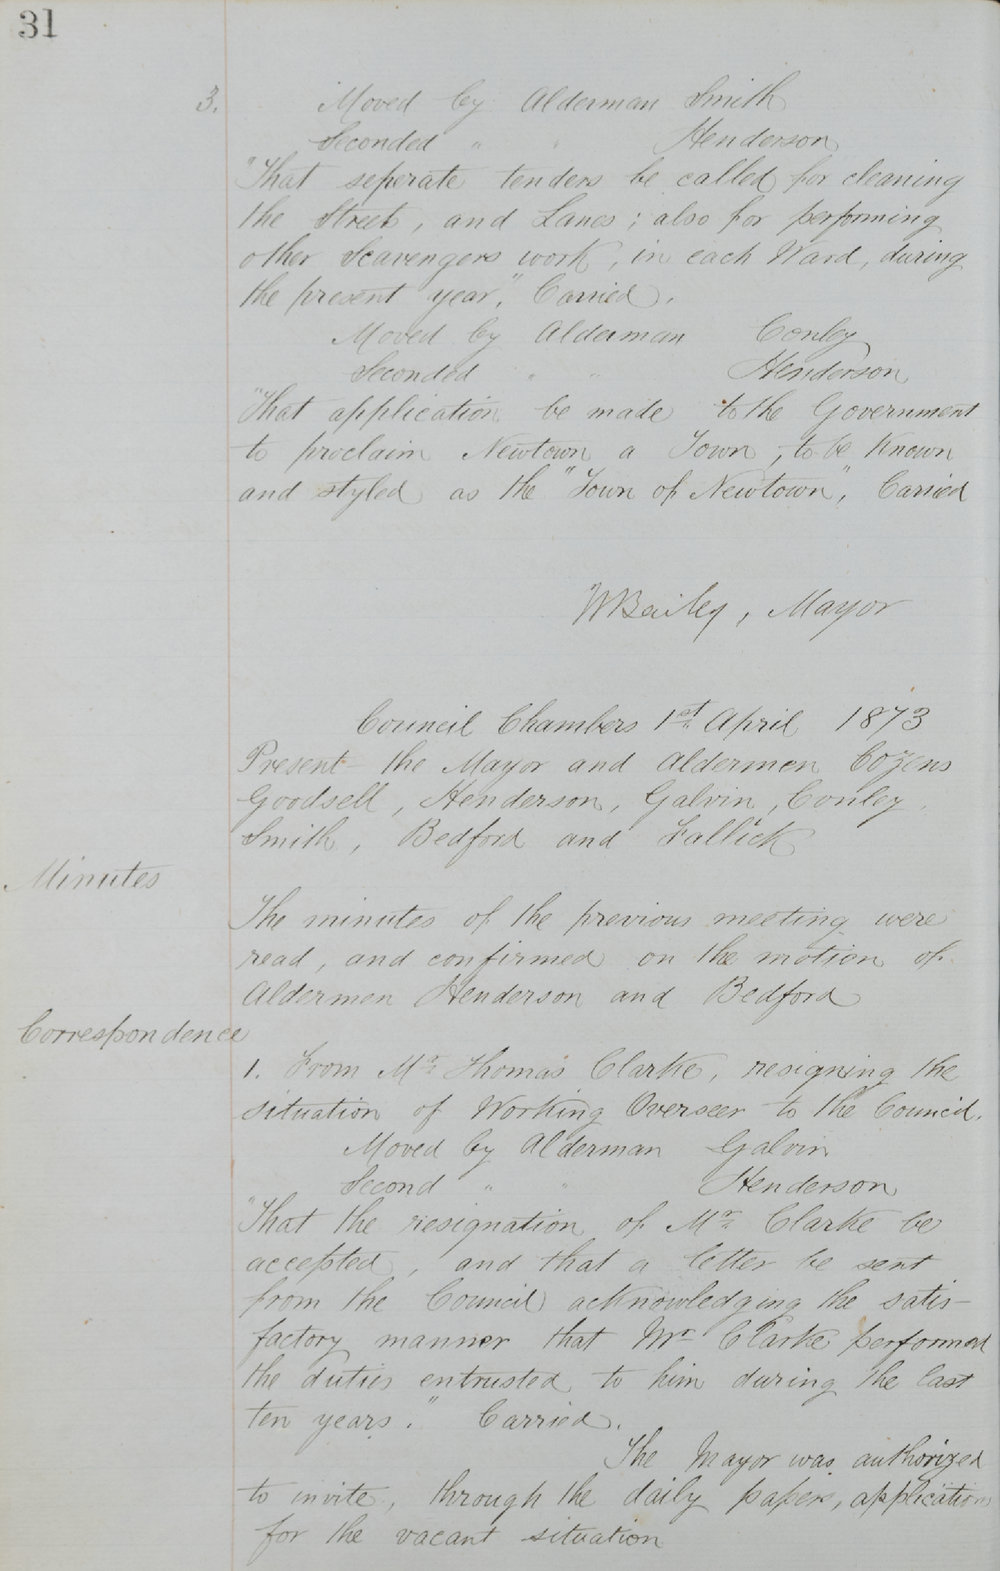 31
3. Moved by Alderman Smith
Seconded " " Henderson
"That seperate tenders be called for cleaning
the Streets, and Lanes; also for performing
other Scavengers work, in each Ward, during
the present year," Carried.
Moved by Alderman Conley
Seconded " " Henderson
"That application be made to the Government
to proclaim Newtown a Town, to be known
and styled as the "Town of Newtown", Carried
WBailey, Mayor
Council Chambers 1st April 1873
Present the Mayor and Aldermen Cozens
Goodsell, Henderson, Galvin, Conley,
Smith, Bedford and Fallick
Minutes
The minutes of the previous meeting were
read, and confirmed on the motion of
Aldermen Henderson and Bedford
Correspondence
1. From Mr Thomas Clarke, resigning the
situation of Working Overseer to the Council.
Moved by Alderman Galvin
Second " " Henderson
"That the resignation of Mr Clarke be
accepted, and that a letter be sent
from the Council acknowledging the satis-
factory manner that Mr Clarke performed
the duties entrusted to him during the last
ten years." Carried.
The Mayor was authorized
to invite, through the daily papers, applications
for the vacant situation